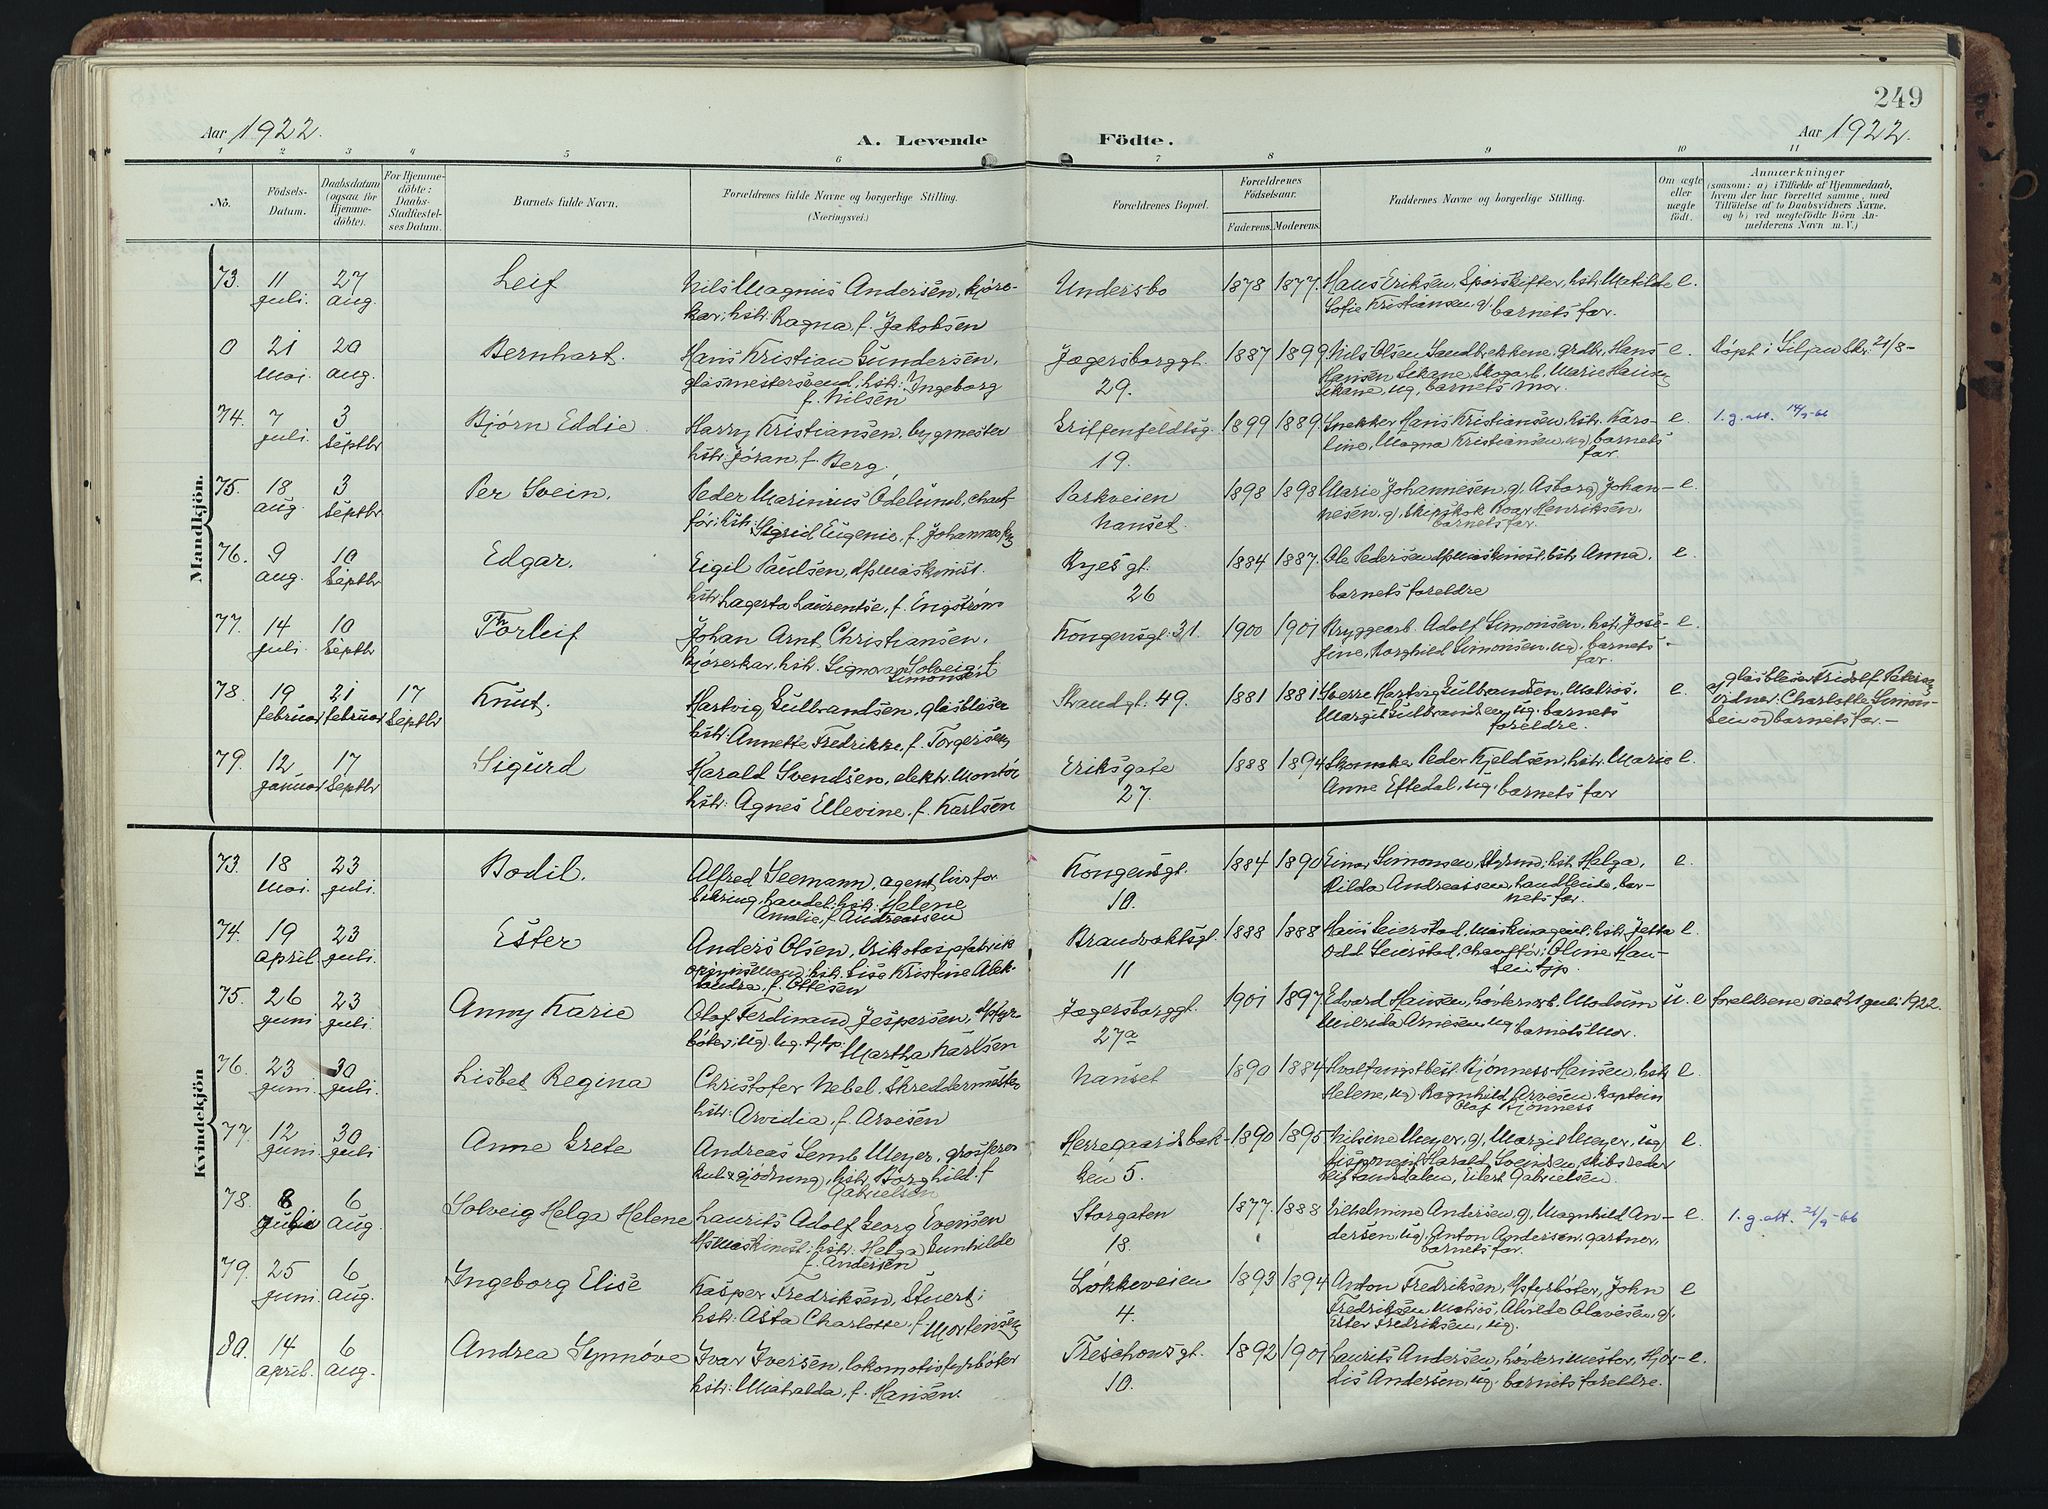 249
Aar 1922.
A. Levende
Födte.
Aar 1922.
1 2 3 4 5 6 7 8 9 10 11
No.
Födsels-
Datum.
Daabsdatum
(ogsaa for
Hjemme-
döbte).
For Hjemme-
döbte:
Daabs-
Stadfæstel-
ses Datum.
Barnets fulde Navn.
Forældrenes fulde Navne og borgerlige Stilling.
(Næringsvei.)
Forældrenes Bopæl.
Forældrenes
Födselsaar.
Faderens. Moderens.
Faddernes Navne og borgerlige Stilling.
Om ægte
eller
uægte
født.
Anmærkninger
(saasom: a) i Tilfælde af Hjemmedaab,
hvem der har forrettet samme, med
Tilföielse af to Daabsvidners Navne,
og b) ved uægtefödte Börn An-
melderens Navn m. V.)
Mandkjön.
73. 11 juli. 27 aug. Leif
Nils Magnus Andersen, kjøre-
kar, hstr. Ragna, f. Jakobsen
Undersbo 1878 1877.
Hans Eriksen, Sporskifter, hstr. Matilde e.
Sofie Kristiansen, g). barnets far.
0 21 Mai. 20 aug. Bernhart.
Hans Kristian Gundersen,
glasmestersvend, hstr: Ingeborg
f. Nilsen
Jægersborggt. 29. 1887 1899
Nils Olsen Sandbekkene, grdbr, Hans e.
Hansen Sekane Skogarb. Marie Hansen
Sekane, ug, barnets mor.
Døpt i Siljan Kr. 21/8-
74. 7 juli. 3 Septbr Bjørn Eddie.
Harry Kristiansen, bygmester
hstr. Jóran, f. Berg.
Griffenfeldtsg. 19. 1899 1889
Snekker Hans Kristiansen, hstr. Karo- e.
line, Magna Kristiansen, ug) barnets
far.
1. g. att. 14/9-66
75. 18 aug. 3 Septbr Per Svein.
Peder Marinius Ödelund, chauf-
før; hstr: Sigrid Eugenie, f. Johannesen
Parkveien Nanset. 1898 1898
Marie Johannesen, g), Asborg) Johan- e.
nesen, g), Skipskok Roar Henriksen,
barnets far.
76. 9 aug. 10 Septbr Edgar.
Eigil Paulsen, dpmaskinist.
hstr. Lagerta Laurentse, f. Engstrøm
Ryesgt. 26 1884 1887.
Ole Pedersen dpmaskinist, hstr Anna, e.
barnets foreldre
77. 14 juli. 10 Septbr Thorleif
Johan Arnt Christiansen,
kjóreskar, hstr. Signora Solveig, f.
Simonsen
Kongensgt. 31. 1900 1901
Bryggearb. Adolf Simonsen, hstr. Jose- e.
fine, Borghild Simonsen, ug). barnets
far.
78. 19 februar 21 februar 17 Septbr Knut,
Hartvig Gulbrandsen, glasblåser
hstr: Annette Fredrikke, f. Torgersen
Strandgt. 49. 1881 1881
Sverre Hartvig Gulbrandsen, Matros, e.
Margit Gulbrandsen, ug. barnets
foreldre.
a) glasbleser Fridolf Petersen
vidner: Charlotte Simon-
sen og barnets far.-
79. 12 januar 17 Septbr Sigurd
Harald Svendsen, elektr. Montör
hstr: Agnes Ellevine, f. Karlsen
Eriksgate 27. 1888 1894
Skomaker Peder Kjeldsen, hstr. Marie e.
Anne Eftedal, ug, barnets far
Kvindekjön
73. 18 Mai. 23 juli. Bodil.
Alfred Seemann, agent, livsfor-
sikring, handel; hstr: Helene
Amalie, f. Andreassen
Kongensgt. 10. 1884 1890
Einar Simonsen, Styrmd; hstr Helga, e.
Rilda Andreassen, handlende, bar-
nets far.
74. 19 april 23 juli. Ester
Anders Olsen, trikotagefabrik
opsynsmand; hstr. Lisa Kristine Alek-
sandra, f. Ottesen
Brandvaktsgt. 11 1888 1888
Hans Seierstad, maskinagent; hstr. Jetta e.
Odd Seierstad, chauffør; Oline Han-
sen tjp.
75. 26 juni 23 juli. Anny Karie
Olaf Ferdinand Jespersen, dpfyr-
bóter, ug). ug. tjp: Martha Karlsen
Jægersborggt. 27a 1901 1897
Edvard Hansen, høvleriarb. Modum u. e
Milrida Arnesen, ug, barnets mor.
foreldrene viet 31 juli 1922.
76. 23 juni. 30 juli. Lisbet Regina
Christofer Nebel. Skreddermester
hstr: Arvidia, f. Arvesen
Nanset 1890 1884
Hvalfangstbest. Bjónness-Hansen, hstr e.
Helene, ug). Ragnhild Arvesen, Kaptein
Olaf Bjónness
77. 12 juni. 30 juli Anne Grete
Andreas Semb Meyer, grosserer
kul & gjödning), hstr. Borghild. f.
Gabrielsen
Herregaardsbak-
ken 5. 1890 1895
Nilsine Meyer, g), Margit Meyer, ug) e.
disponent Harald Svendsen, skibsreder
Leif Landsdalen, Eilert Gabrielsen.
78. 8 juli 6 aug. Solveig Helga Helene
Laurits Adolf Georg Evensen
dpmaskinist; hstr: Helga Gunhilde
f. Andersen
Storgaten 18. 1877. 1888
Vilhelmine Andersen, g), Magnhild An- e.
dersen, ug), Anton Andersen, gartner,
barnets far.
1. g. att. 26/9-66
79. 25 juni. 6 aug. Ingeborg Elise
Kasper Fredriksen, Stuert;
hstr: Asta Charlotte, f. Mortensen
Løkkeveien 4. 1893 1894
Anton Fredriksen, dpfyrbóter, John e
Fredriksen, Matros, Alvilde Olavesen, g),
Ester Fredriksen, ug.
80. 14 april. 6 aug. Andrea Synnöve
Ivar Iversen, lokomotivfyrbóter
hstr: Mathalda, f. Hansen.
Treschowsgt. 10. 1892 1901
Laurits Andersen, hóvlerimester, Hjör- e.
dis Andersen, ug, barnets foreldre.